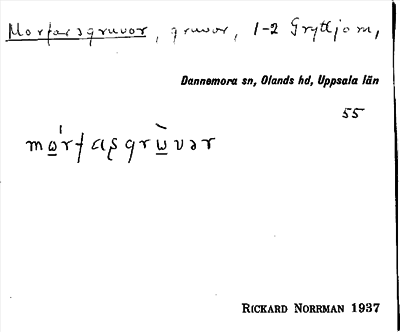 Morfarsgruvor, gruvor, 1-2 Gryttjom,
Dannemora sn, Olands hd, Uppsala län
55
mώ̲rfaʂgrὼ̲vər
RICKARD NORRMAN 1937